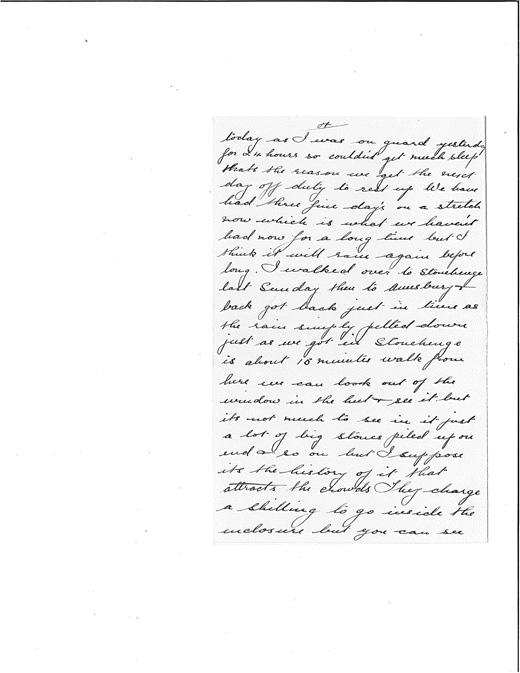 4
today as I was on guard yesterday
for 24 hours so couldn't get much sleep
thats the reason we get the next
day off duty to rest up We have
had three fine day's on a stretch
now which is what we haven't
had now for a long time but I
think it will rain again before
long. I walked over to Stonehenge
last Sunday then to Amesbury &
back got back just in time as
the rain simply pelted down
just as we got in Stonehenge
is about 15 minutes walk from
here we can look out of the
window in the hut & see it but
its not much to see in it just
a lot of big stones piled up on
end & so on but I suppose
its the history of it that
attracts the crowds They charge
a shilling to go inside the
inclosure but you can see